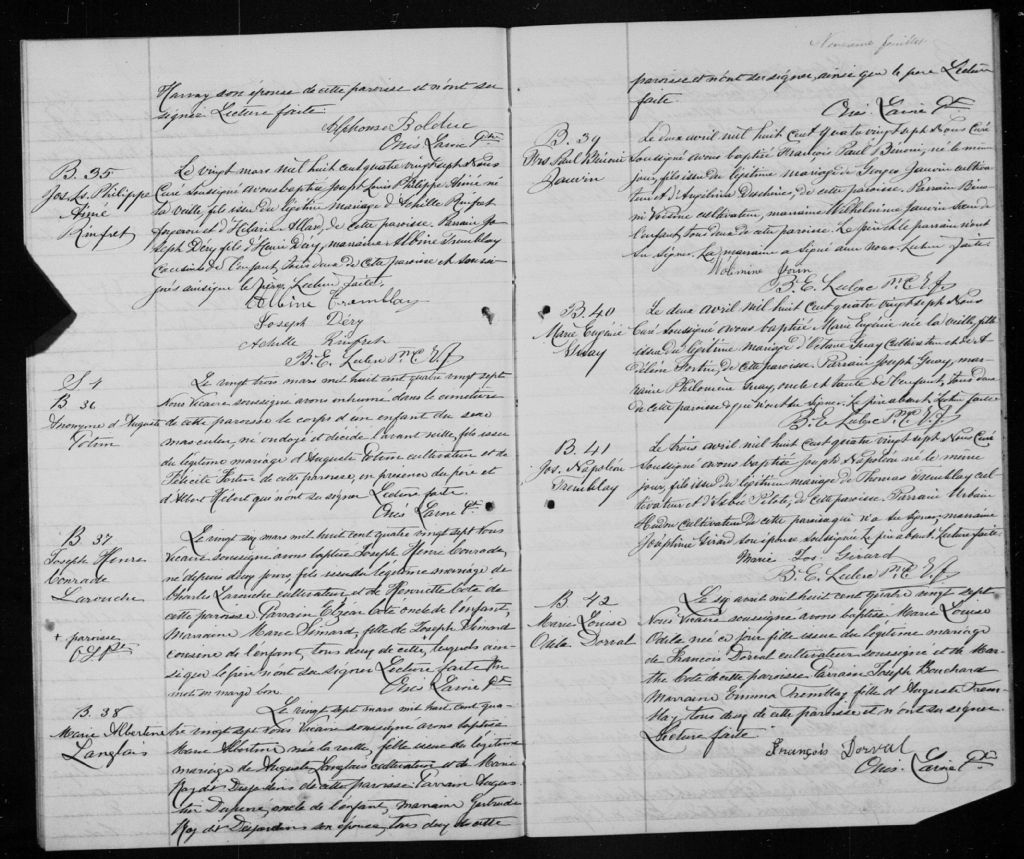 Harvay son épouse de cette paroisse et n'ont su
signer. Lecture faite.
Alphonse Bolduc
Onés. Larive Ptre
B. 35
Jos. Ls. Philippe
Aimé
Rinfret
Le vingt mars mil huit cent quatre vingt sept Nous
Curé soussigné avons baptisé Joseph Louis Philippe Aimé né
la veille, fils issu du légitime mariage d'Achille Rinfret
forgeron et d'Hélarien Allard, de cette paroisse. Parrain Jo-
seph Déry fils d'Henri Déry, marraine Albine Tremblay
cousine de l'enfant, tous deux de cette paroisse et soussi-
gnés ainsi que le père. Lecture faite.
Albine Tremblay
Joseph Déry
Achille Rinfret
B. E. Leclerc Ptre C. V. F.
S 4
B 36
Anonyme d'Auguste
Potvin
Le vingt trois mars mil huit cent quatre vingt sept
Nous Vicaire soussigné avons inhumé dans le cimetière
de cette paroisse le corps d'un enfant du sexe
masculin, né ondoyé et décédé l'avant veille, fils issu
du légitime mariage d'Auguste Potvin cultivateur et de
Félicité Fortin de cette paroisse, en présence du père et
d'Albert Hébert qui n'ont su signer Lecture faite.
Onés. Larive Ptre
B 37
Joseph Henri
Conrade
Larouche
Le vingt six mars mil huit cent quatre vingt sept Nous
Vicaire soussigné avons baptisé Joseph Henri Conrade,
né depuis deux jours, fils issu du légitime mariage de
Charles Larouche cultivateur et de Henriette Coté de
cette paroisse Parrain Elzéar Coté oncle de l'enfant,
Marraine Marie Simard, fille de Joseph Simard
cousine de l'enfant, tous deux de cette, lesquels ain-
si que le père n'ont su signer Lecture faite Un
mot en marge bon.
Onés. Larive Ptre
+ paroisse
O L Ptre
B. 38
Marie Albertine
Langlais
Le vingt sept mars mil huit cent qua-
tre vingt sept Nous Vicaire soussigné avons baptisé
Marie Albertine née la veille, fille issue du légitime
mariage de Auguste Langlais cultivateur et de Marie
Roy dit Desjardins de cette paroisse Parrain
oncle de l'enfant, marraine Gertrude
Roy dit Desjardins son épouse, tous deux de cette
Neuvième feuillet
paroisse et n'ont su signer, ainsi que le père Lecture
faite.
Onés. Larive Ptre
B. 39
Frs Paul Bénoni
Jauvin
Le deux avril mil huit cent quatre vingt sept Nous Curé
soussigné avons baptisé François Paul Bénoni, né le même
jour, fils issu du légitime mariage de Georges Jauvin cultiva-
teur et d'Angélina Duchesne, de cette paroisse. Parrain Béno-
ni cultivateur, marraine Wilhelmine Jauvin sœur de
l'enfant, tous deux de cette paroisse. Le père et le parrain n'ont
su signer. La marraine a signé avec nous. Lecture faite.
B. E. Leclerc Ptre C. V. F.
B. 40
Marie Eugénie
Guay
Le deux avril mil huit cent quatre vingt sept Nous
Curé soussigné avons baptisé Marie Eugénie née la veille, fille
issue du légitime mariage d'Octave Guay cultivateur et de A-
délina Fortin, de cette paroisse. Parrain Joseph Guay, mar-
raine Philomène Guay, oncle et tante de l'enfant, tous deux
de cette paroisse et qui n'ont su signer. Le père absent. Lecture faite
B. E. Leclerc Ptre C. V. F.
B. 41
Jos. Napoléon
Tremblay
Le trois avril mil huit cent quatre vingt sept Nous Curé
soussigné avons baptisé Joseph Napoléon né le même
jour, fils issu du légitime mariage de Thomas Tremblay cul-
tivateur et d'Arthée Pilote, de cette paroisse. Parrain Urbain
Hudon cultivateur de cette paroisse qui n'a su signer, marraine
Joséphine Girard son épouse soussignée le père absent. Lecture faite.
Marie Jos Girard
B. E. Leclerc Ptre C. V. F.
B. 42
Marie Louise
Odila Dorval
Le six avril mil huit cent quatre vingt sept
Nous Vicaire soussigné avons baptisé Marie Louise
Odila née ce jour fille issue du légitime mariage
de François Dorval cultivateur soussigné et de Mar-
the Coté de cette paroisse Parrain Joseph Bouchard
Marraine Emma Tremblay fille d'Auguste Trem-
blay, tous deux de cette paroisse et n'ont su signer.
Lecture faite.
François Dorval
Onés. Larive Ptre